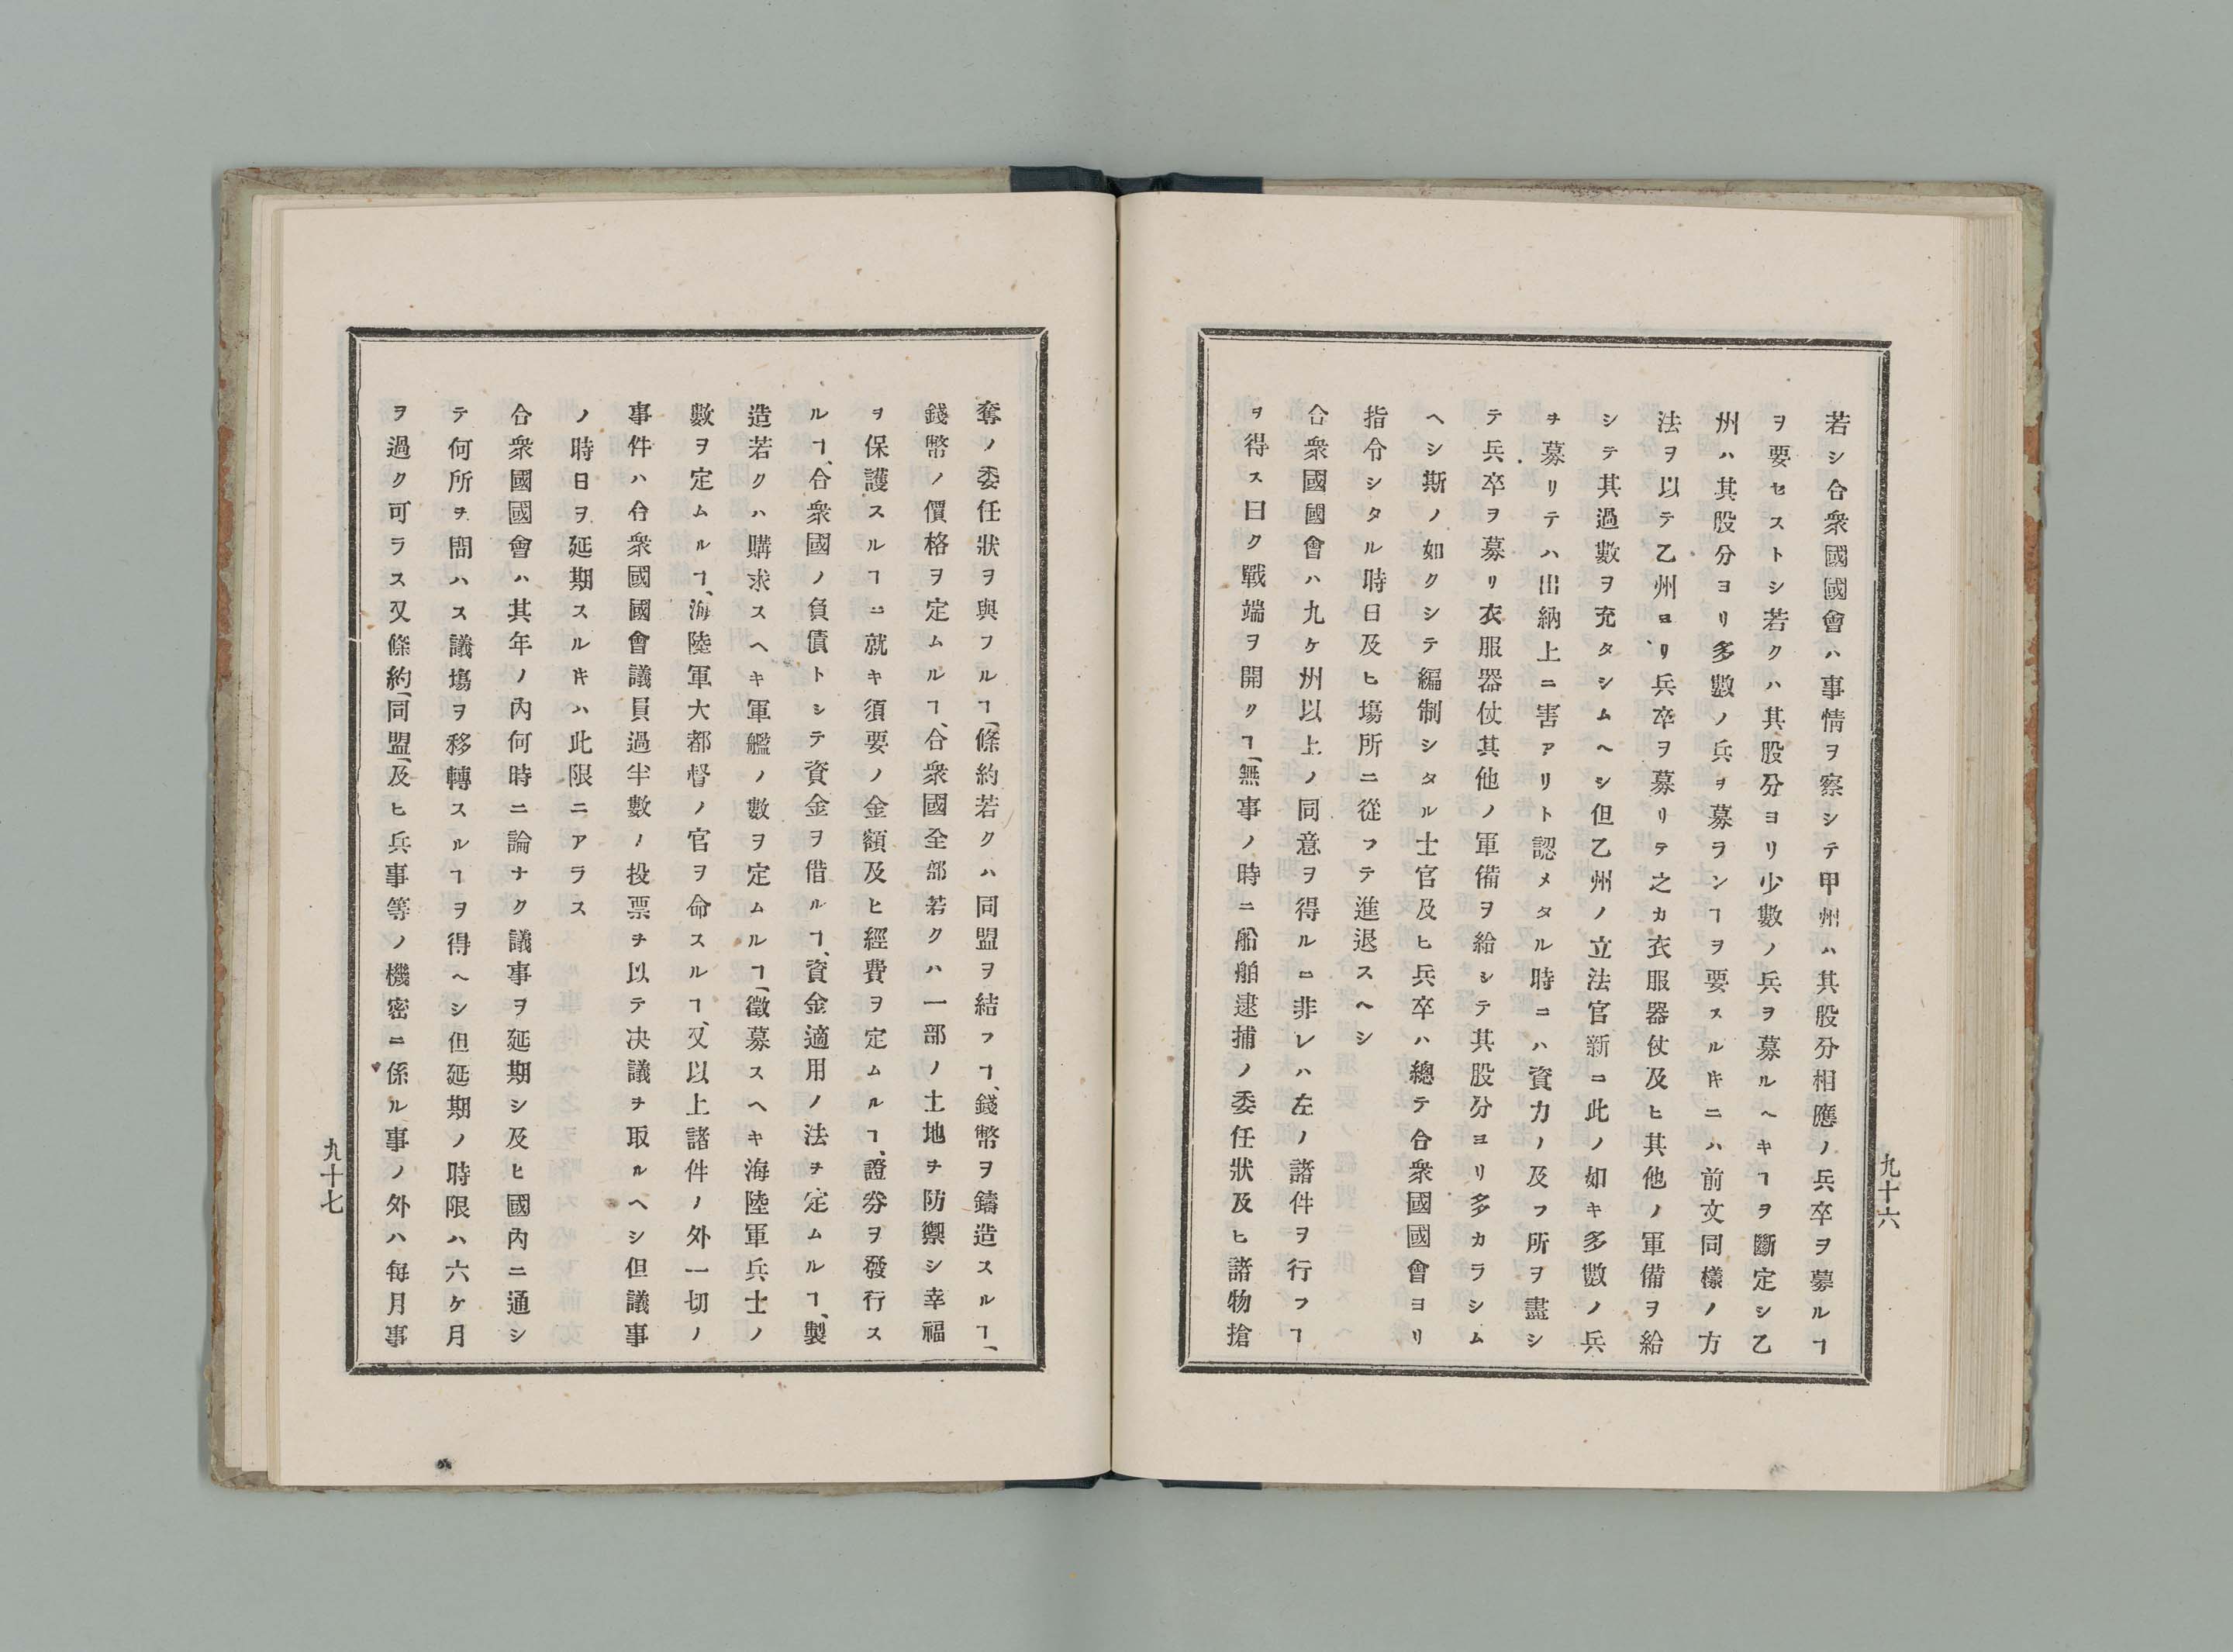 九十六
若シ合衆國國會ハ事情ヲ察シテ甲州ハ其股分相應ノ兵卒ヲ募ルヿ
ヲ要セストシ若クハ其股分ヨリ少數ノ兵ヲ募ルヘキヿヲ斷定シ乙
州ハ其股分ヨリ多數ノ兵ヲ募ランヿヲ要スルキニハ前文同樣ノ方
法ヲ以テ乙州ヨリ兵卒ヲ募リテ之カ衣服器仗及ヒ其他ノ軍備ヲ給
シテ其過數ヲ充タシムヘシ但乙州ノ立法官新ニ此ノ如キ多數ノ兵
ヲ募リテハ出納上ニ害アリト認メタル時ニハ資力ノ及フ所ヲ盡シ
テ兵卒ヲ募リ衣服器仗其他ノ軍備ヲ給シテ其股分ヨリ多カラシム
ヘシ斯ノ如クシテ編制シタル士官及ヒ兵卒ハ總テ合衆國國會ヨリ
指令シタル時日及ヒ塲所ニ從フテ進退スヘシ
合衆國國會ハ九ケ州以上ノ同意ヲ得ルニ非レハ左ノ諸件ヲ行フヿ
ヲ得ス曰ク戰端ヲ開クヿ、無事ノ時ニ船舶逮捕ノ委任狀及ヒ諸物搶
奪ノ委任狀ヲ與フルヿ、條約若クハ同盟ヲ結フヿ、錢幣ヲ鑄造スルヿ、
錢幣ノ價格ヲ定ムルヿ、合衆國全部若クハ一部ノ土地ヲ防禦シ幸福
ヲ保護スルヿニ就キ須要ノ金額及ヒ經費ヲ定ムルヿ、證券ヲ發行ス
ルヿ、合衆國ノ負債トシテ資金ヲ借ルヿ、資金適用ノ法ヲ定ムルヿ、製
造若クハ購求スヘキ軍艦ノ數ヲ定ムルヿ、徵募スヘキ海陸軍兵士ノ
數ヲ定ムルヿ、海陸軍大都督ノ官ヲ命スルヿ、又以上諸件ノ外一切ノ
事件ハ合衆國國會議員過半數ノ投票ヲ以テ决議ヲ取ルヘシ但議事
ノ時日ヲ延期スルキハ此限ニアラス
合衆國國會ハ其年ノ内何時ニ論ナク議事ヲ延期シ及ヒ國内ニ通シ
テ何所ヲ問ハス議塲ヲ移轉スルヿヲ得ヘシ但延期ノ時限ハ六ケ月
ヲ過ク可ラス又條約、同盟、及ヒ兵事等ノ機密ニ係ル事ノ外ハ每月事
九十七